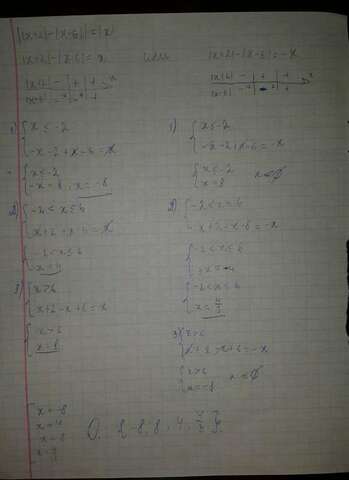 ||x+2|-|x-6||=|x|
|x+2|-|x-6|=x или |x+2|-|x-6|=-x
|x+2| - + +
|x-6| - - +
x
|x+2| - + +
|x-6| - - +
x
1) { x ≤ -2
-x-2+x-6=x
{ x ≤ -2
-x=8, x=-8
2) { -2<x≤6
x+2+x-6=x
{ -2<x≤6
x=4
3) { x>6
x+2-x+6=x
{ x>6
x=8
1) { x≤-2
-x-2+x-6=-x
{ x≤-2
x=8
x∈∅
2) { -2<x≤6
x+2+x-6=-x
{ -2<x≤6
3x=4
{ -2<x≤6
x=4/3
3) { x>6
x+2-x+6=-x
{ x>6
x=-8
x∈∅
x=-8
x=4
x=8
O. {-8, 8, 4, 4/3}